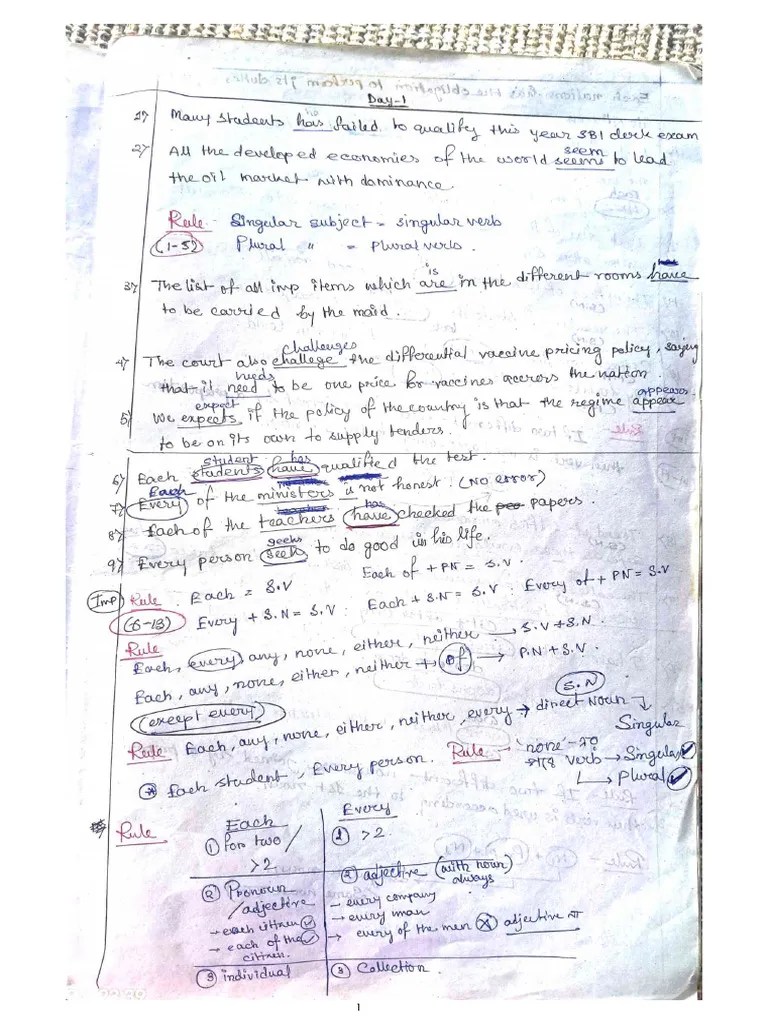 Day-1
1) Many students has failed to qualify this year SBI clerk exam
seem
2) All the developed economies of the world seems to lead
the oil market with dominance.
Rule Singular subject = singular verb
(1-5) Plural " = Plural verb.
is
3) The list of all imp items which are in the different rooms have
to be carried by the maid.
challenges
4) The court also challege the differential vaccine pricing policy, saying
needs
that it need to be one price for vaccines accrers the nation.
expect appears
5) We expects if the policy of the country is that the regime appear
to be on its own to supply tenders.
student has
6) Each students have qualified the test.
Each
7) Every of the ministers is not honest. (NO error)
has
8) Each of the teachers have checked the papers.
seeks
9) Every person seek to do good in his life.
Each of + PN = S.V.
Imp Rule Each = S.V
(6-13) Every + S.N = S.V. Each + S.N = S.V. Every of + PN = S.V
Rule
Each, every, any, none, either, neither → S.V + S.N.
Each, any, none, either, neither + of → P.N + S.V.
(except every) S.N
Rule Each, any, none, either, neither, every → direct Noun → Singular
* Each student, Every person. Rule - 'none' verb → Singular ✓
→ Plural ✓
Rule Each Every
① For two / > 2 ① > 2.
② Pronoun / adjective ② adjective (with noun) always
→ each citizen ✓ → every company
→ each of the citizen. ✓ → every man
→ every of the men ✗ adjective
③ individual ③ Collection.
1